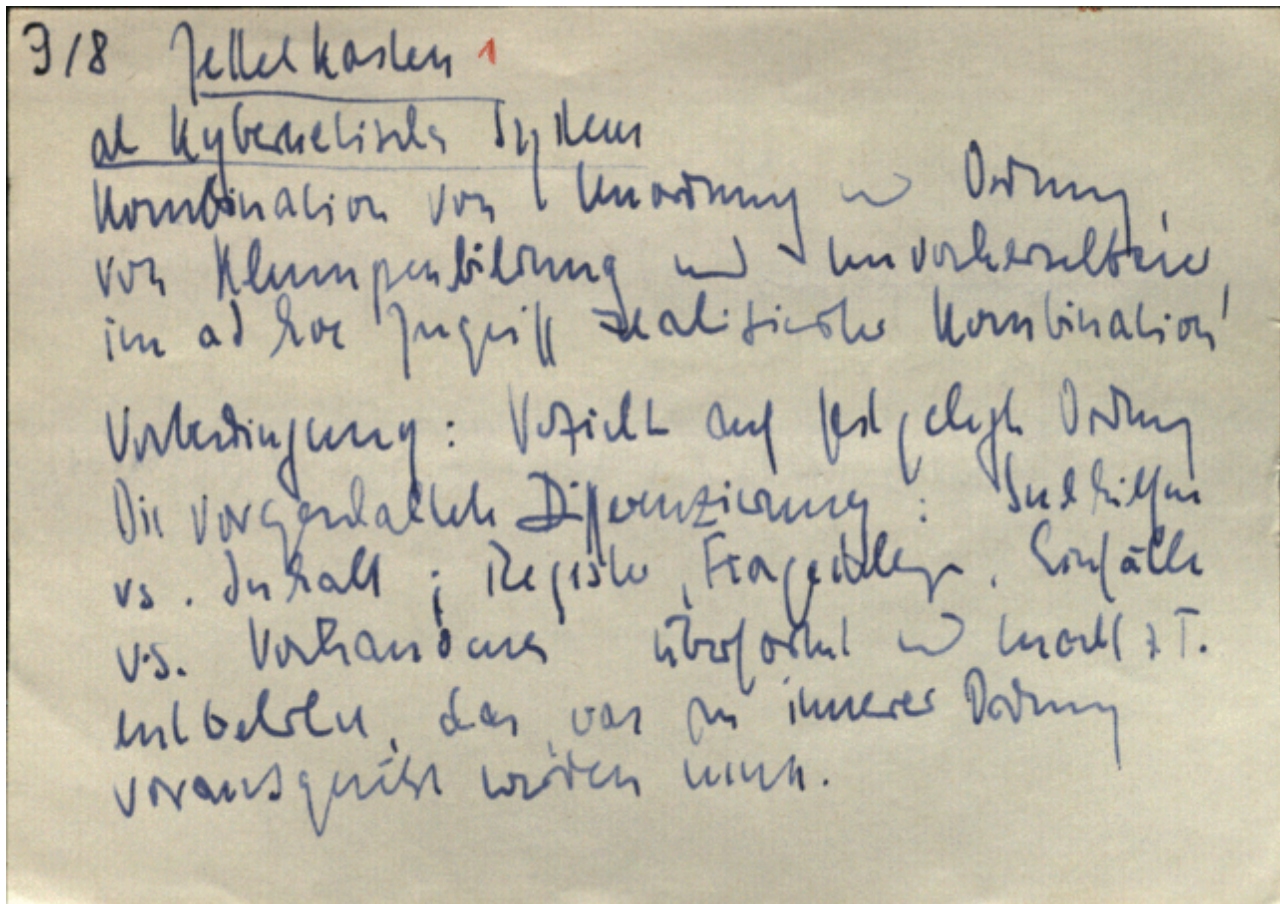 9/8 Zettelkasten 1
als kybernetisches System
Kombination von Unordnung und Ordnung,
von Klumpenbildung und unvorhersehbarer
im ad hoc Zugriff realisierter Kombination
Vorbedingung: Verzicht auf festgelegte Ordnung
Die vorgeschaltete Differenzierung: Suchhilfen
vs. Inhalt; Register, Fragestellungen, Einfälle
vs. Vorhandenes überformt und macht z.T.
entbehrlich, das, was an innerer Ordnung
vorausgesetzt werden muß.